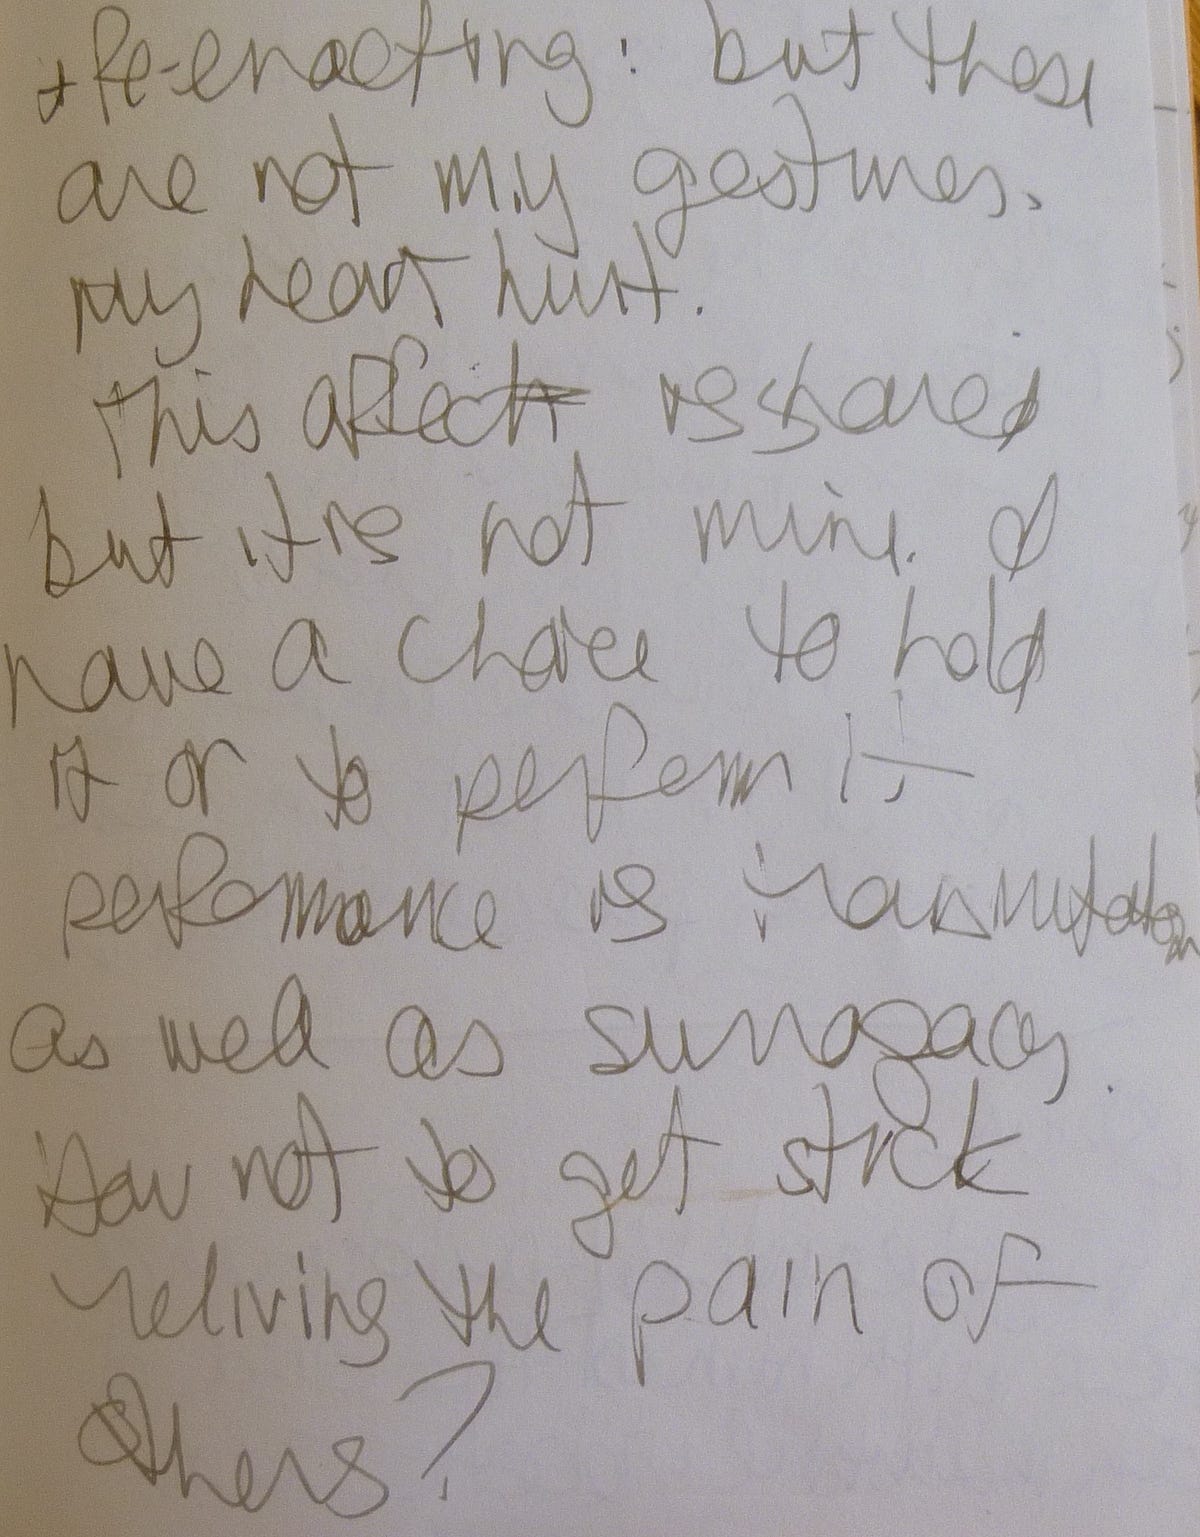 + Re-enacting: but these
are not my gestures.
My heart hurt.
This affect is shared
but it is not mine. I
have a choice to hold
it or to perform it
performance is transmutation
as well as surrogacy.
How not to get stuck
reliving the pain of
others?